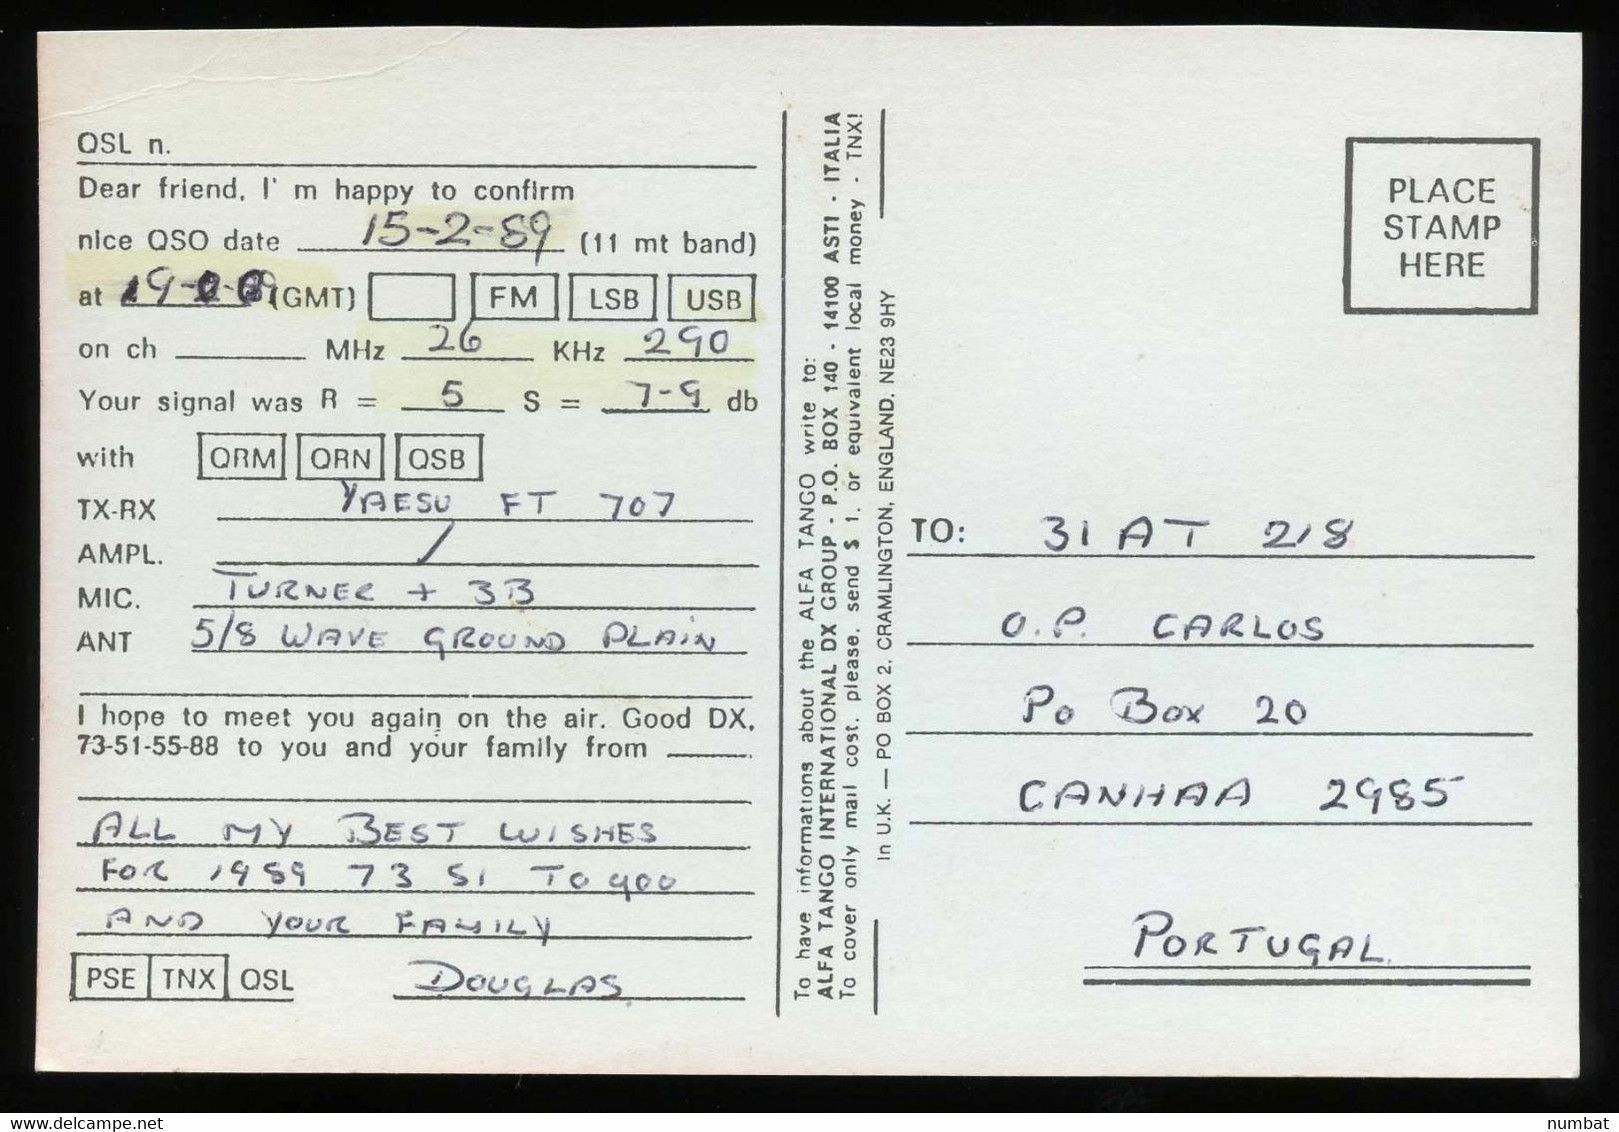 QSL n.
Dear friend, I' m happy to confirm
nice QSO date 15-2-89 (11 mt band)
at (GMT) FM LSB USB
on ch MHz 26 KHz 290
Your signal was R = 5 S = 7-9 db
with QRM QRN QSB
TX-RX YAESU FT 707
AMPL. /
MIC. TURNER + 3B
ANT 5/8 WAVE GROUND PLAIN
I hope to meet you again on the air. Good DX,
73-51-55-88 to you and your family from
ALL MY BEST WISHES
FOR 1989 73 51 TO YOU
AND YOUR FAMILY
PSE TNX QSL DOUGLAS
To have informations about the ALFA TANGO write to:
ALFA TANGO INTERNATIONAL DX GROUP - P.O. BOX 140 - 14100 ASTI - ITALIA
To cover only mail cost, please, send $ 1. or equivalent local money - TNX!
In U.K. — PO BOX 2, CRAMLINGTON, ENGLAND. NE23 9HY
PLACE
STAMP
HERE
TO: 31 AT 218
O.P. CARLOS
PO BOX 20
CANHAA 2985
PORTUGAL
numbat